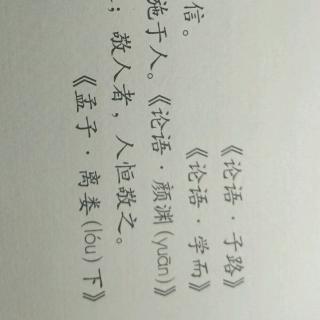 《论语·子路》
信。 《论语·学而》
施于人。《论语·颜渊(yuān)》
；敬人者，人恒敬之。
《孟子·离娄(lóu)下》